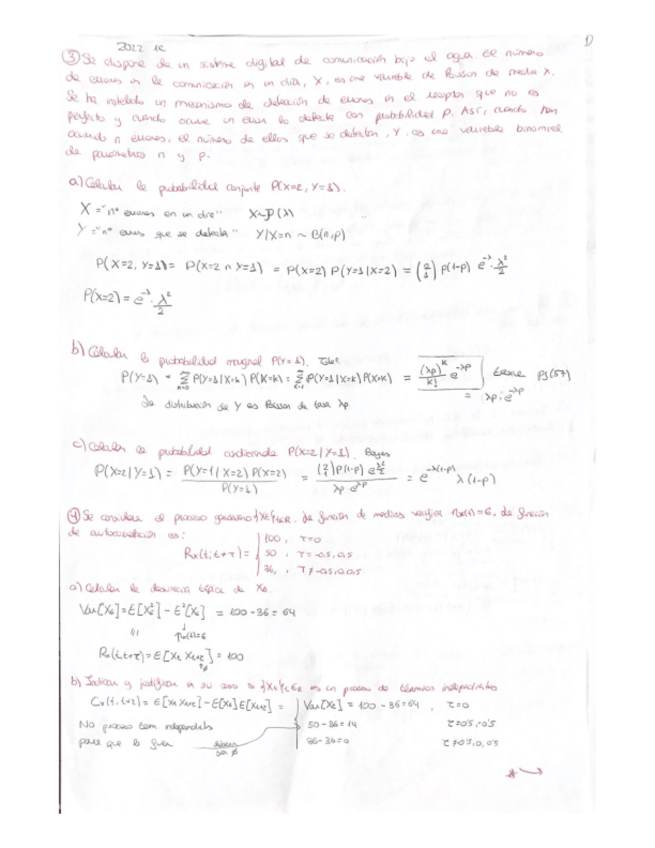 2022 1C
1)
③ Se dispone de un sistema digital de comunicación bajo el agua. El número
de errores en la comunicación en un día, X, es una variable de Poisson de media λ.
Se ha instalado un mecanismo de detección de errores en el receptor que no es
perfecto y cuando ocurre un error lo detecta con probabilidad p. Así, cuando han
ocurrido n errores, el número de ellos que se detectan, Y, es una variable binomial
de parámetros n y p.
a) Calcular la probabilidad conjunta P(X=2, Y=1).
X = "nº errores en un día" X~P(λ)
Y = "nº errores que se detecta" Y/X=n ~ B(n,p)
P(X=2, Y=1) = P(X=2 ∩ Y=1) = P(X=2) P(Y=1|X=2) = (2 1) p(1-p) e^-λ · λ²/2
P(X=2) = e^-λ · λ²/2
b) Calcular la probabilidad marginal P(Y=1).
P(Y=1) = Σ P(Y=1|X=k) P(X=k) = Σ P(Y=1|X=k) P(X=k) = (λp)^k/k! e^-λp pg(57)
= λp·e^-λp
La distribución de Y es Poisson de tasa λp.
c) Calcular la probabilidad condicionada P(X=2/Y=1). Bayes
P(X=2|Y=1) = P(Y=1|X=2) P(X=2) / P(Y=1) = (2 1) p(1-p) e^-λ λ²/2 / λp·e^-λp = e^-λ(1-p) λ(1-p)
④ Se considera el proceso gaussiano {Xt}t∈R, de función de medias verifica μx(t)=6, de función
de autocorrelación es:
Rx(t,t+τ) = 100, τ=0
50, τ=-0.5, 0.5
36, τ≠-0.5,0,0.5
a) Calcular la desviación típica de X6.
Var[X6] = E[X6²] - E²[X6] = 100-36 = 64
μx(t)=6
Rx(t,t+τ) = E[Xt Xt+τ] = 100
b) Indicar y justificar en su caso si {Xt}t∈R es un proceso de términos independientes
Cx(t,t+τ) = E[Xt Xt+τ] - E[Xt]E[Xt+τ] = Var[Xt] = 100-36=64, τ=0
No proceso term independientes 50-36=14 τ=0.5, -0.5
para que lo fuera debería ser 0 36-36=0 τ≠0.5, 0, 0.5